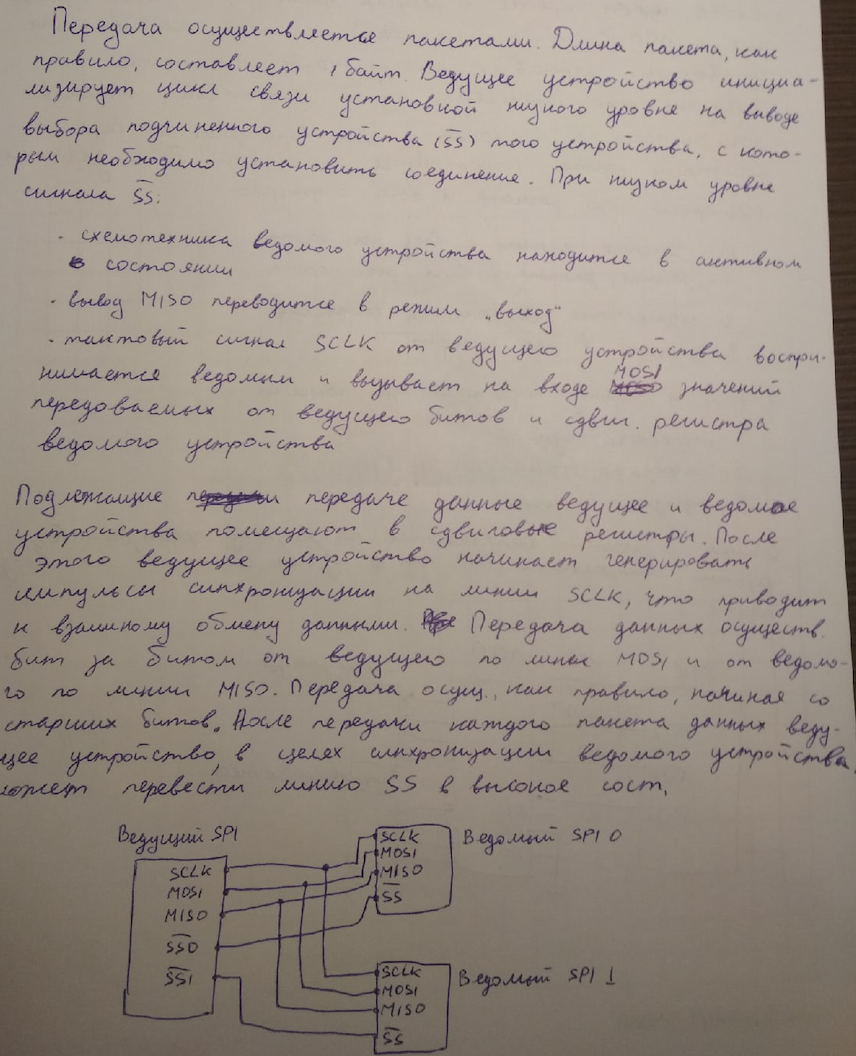 Передача осуществляется пакетами. Длина пакета, как
правило, составляет 1 байт. Ведущее устройство инициа-
лизирует цикл связи установкой низкого уровня на выводе
выбора подчиненного устройства (S̅S̅) того устройства, с кото-
рым необходимо установить соединение. При низком уровне
сигнала S̅S̅:
· схемотехника ведомого устройства находится в активном
состоянии
· вывод MISO переводится в режим „выход"
· тактовый сигнал SCLK от ведущего устройства воспри-
нимается ведомым и вызывает на входе MOSI значений
передоваемых от ведущего битов и сдвиг. регистра
ведомого устройства
Подлежащие передаче данные ведущее и ведомое
устройства помещают в сдвиговые регистры. После
этого ведущее устройство начинает генерировать
импульсы синхронизации на линии SCLK, что приводит
к взаимному обмену данными. Передача данных осуществ.
бит за битом от ведущего по линии MOSI и от ведомо-
го по линии MISO. Передача осущ., как правило, начиная со
старших битов. После передачи каждого пакета данных веду-
щее устройство, в целях синхронизации ведомого устройства,
может перевести линию SS в высокое сост.
Ведущий SPI
SCLK
MOSI
MISO
S̅S̅0
S̅S̅1
SCLK
MOSI
MISO
S̅S̅
Ведомый SPI 0
SCLK
MOSI
MISO
S̅S̅
Ведомый SPI 1